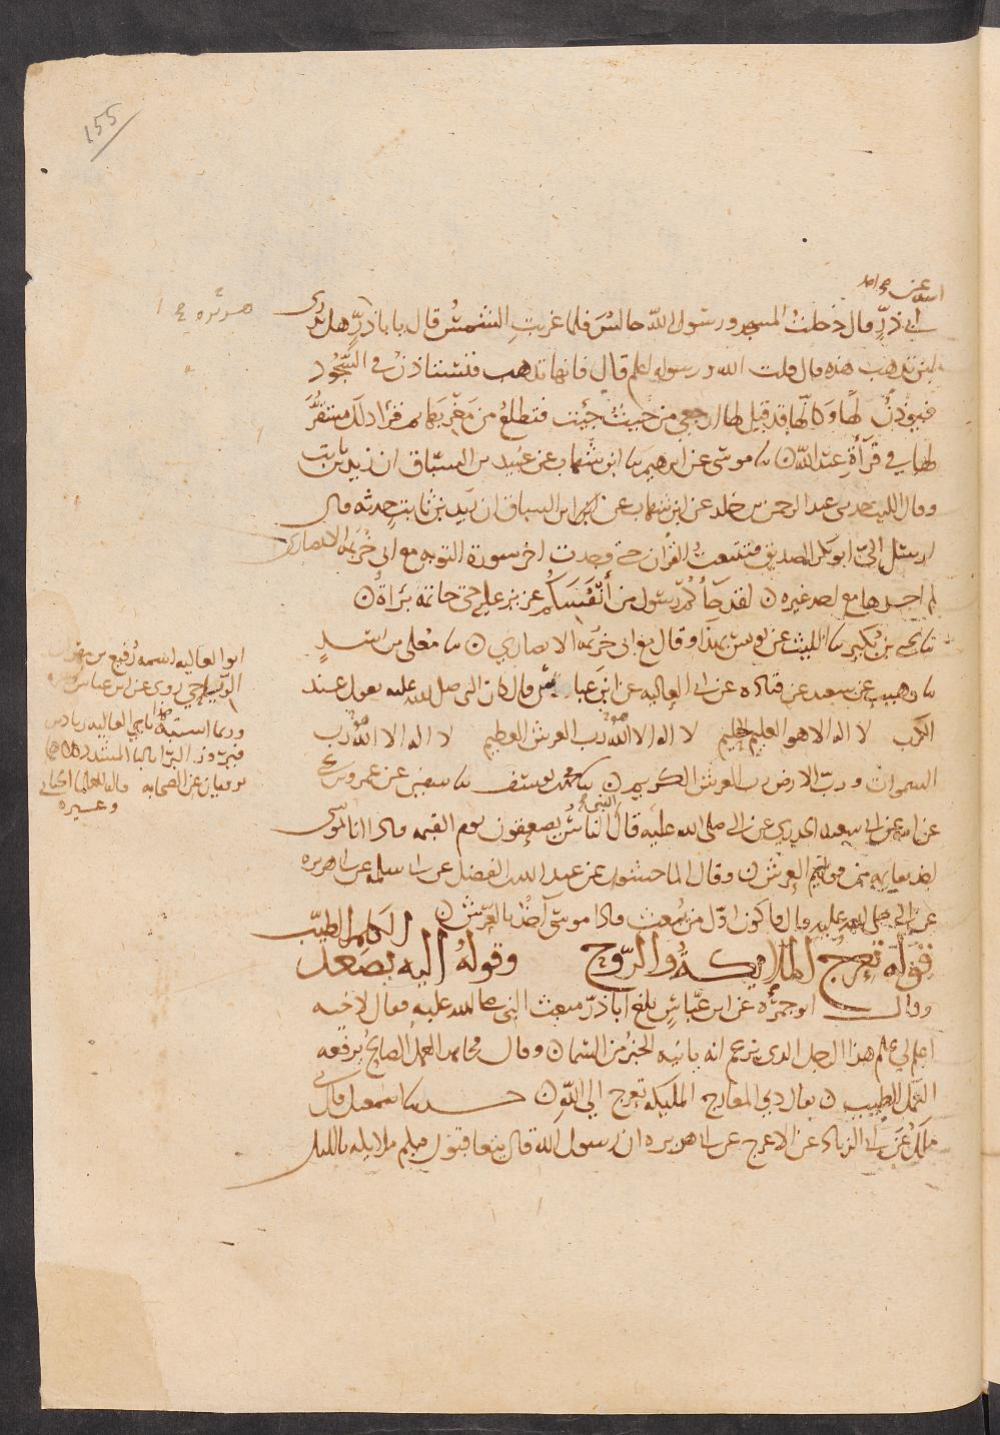 155
ابي ذرٍّ قال دخلتُ المسجد ورسول الله جالسٌ فلما غربتِ الشمسُ قال يا با ذرٍّ هل تدري
اين تذهب هذه قال قلت الله ورسوله اعلم قال فانها تذهب فتستاذنُ في السُّجُود
فيوذنُ لها وكانّها قد قيل لها ارجعي من حيثُ جئتِ فتطلعُ من مغربها ثم قرا ذلك مستقرٌّ
لها في قرآةِ عبد الله ن نا موسى عن ابرهيم نا ابن شهاب عن عبيد بن السباق ان زيد بن ثابت
وقال الليث حدثني عبد الرحمن بن خلد عن ابن شهاب عن ابن السباق ان زيد بن ثابت حدثه قال
ارسل اليّ ابو بكر الصديق فتتبعتُ القران حتى وجدت اخر سورة التوبه مع ابي خزيمه الانصاري
لم اجدها مع احد غيره ن لقد جآءكُم رسول من أنفُسكم عزيز عليه حتى خاتمه برآة ن
نا يحيى بن بُكير نا الليث عن يونس بهذا وقال مع ابي خزيمه الانصاري ن نا معلى بن اسدٍ
نا وهيب عن سعيد عن قتاده عن ابي العاليه عن ابن عباس قال كان النبي صلى الله عليه يقول عند
الكرب لا اله الا هو العليم الحليم لا اله الا الله رب العرش العظيم لا اله الا الله رب
السموات وربّ الارض رب العرش الكريم ن نا محمد بن يوسف نا سفين عن عمرو بن يحيى
عن ابيه عن ابي سعيد الخدري عن النبي صلى الله عليه قال الناسُ يصعقون يوم القيمه فاذا انا بموسى
اخذ بقايمه من قوايم العرش ن وقال الماجشون عن عبد الله بن الفضل عن ابي سلمه عن ابي هريره
عن النبي صلى الله عليه قال فاكون اوّل من بُعث فاذا موسى آخذٌ بالعرش ن
قوله تعرج الملايكةُ والرّوح وقولهُ اليه يصعد الكلم الطيّب
وقال ابو جمرة عن ابن عبّاسٍ بلغ أبا ذرّ مبعث النبي صلى الله عليه فقال لاخيه
اعلم لي علم هذا الرجل الذي يزعم انه ياتيه الخبرُ من السما ن وقال مجاهد العمل الصالحُ يرفعه
الكلم الطيب ن يقال ذي المعارج المليكه تعرج الي الله ن حدثنا اسمعيل قال
ملكٌ عن ابي الزناد عن الاعرج عن ابي هريره ان رسول الله قال يتعاقبون فيكم ملايكه بالليل
ابو العاليه اسمه رُفيع بن مهران
الرياحي يروى عن ابن عباس
وربما اشتبه هذا بابي العاليه زياد بن
فيروز البرّا بالبا المشدد
يرويان عن الصحابه
وغيره